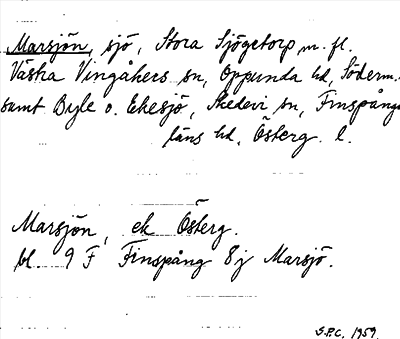 Marsjön, sjö, Stora Sjögetorp m. fl.
Västra Vingåkers sn, Oppunda hd, Söderm.
samt Byle o. Ekesjö, Skedevi sn, Finspånga
läns hd, Österg. l.
Marsjön, ek Österg.
bl. 9 F Finspång 8 j Marsjö.
S.P.C. 1959.